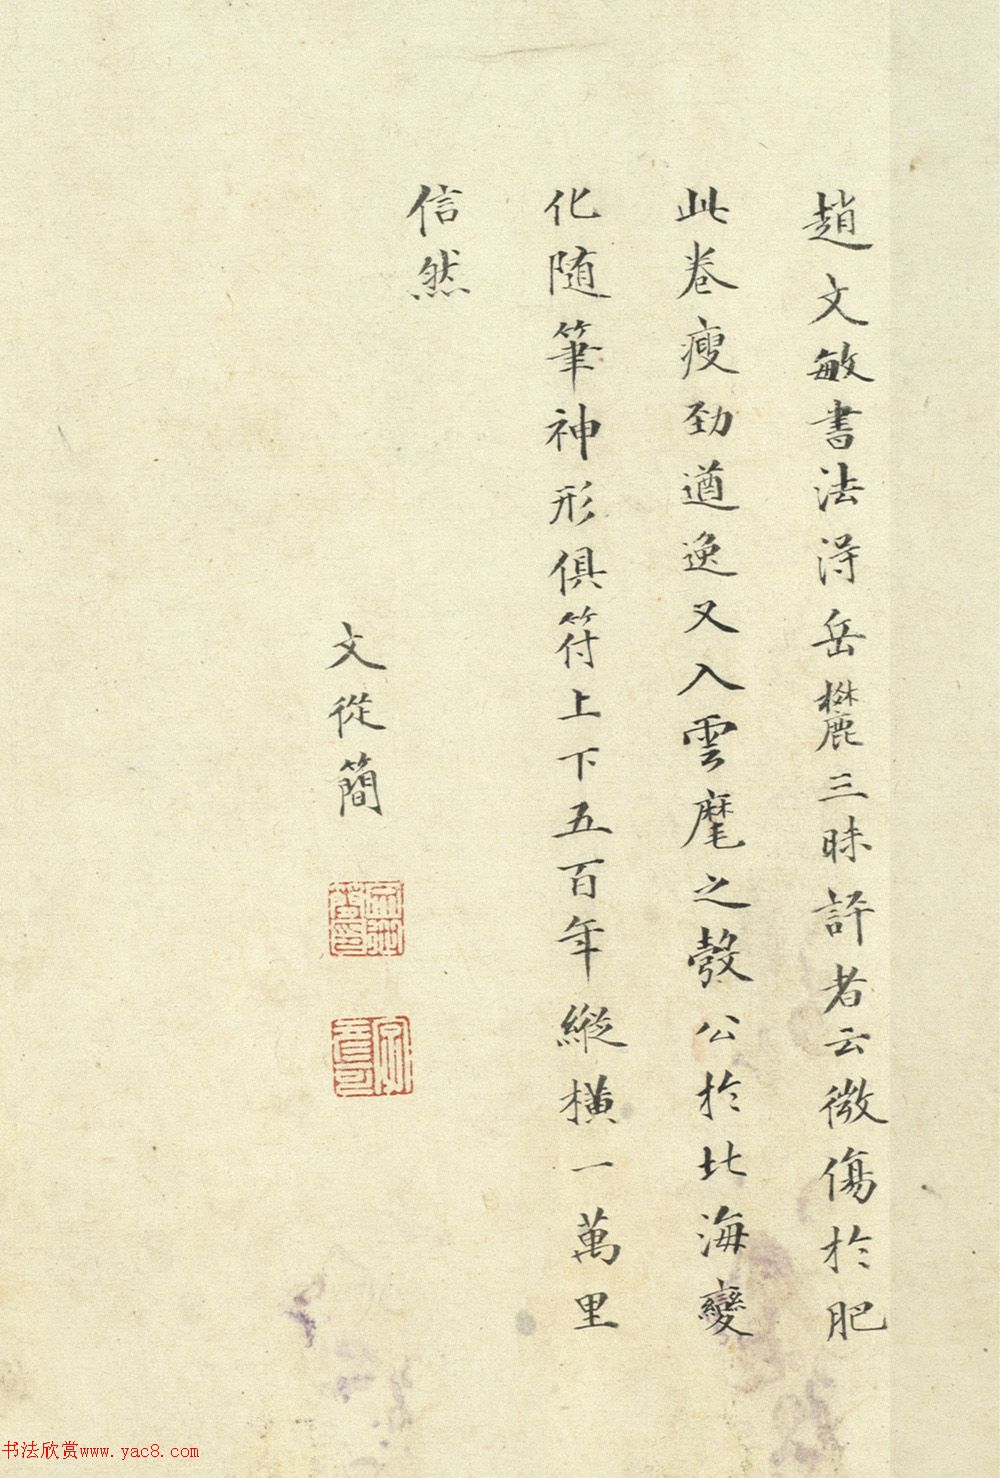 趙文敏書法淂岳麓三昧評者云微傷於肥
此卷瘦勁遒逸又入雲麾之彀公於北海變
化随筆神形俱符上下五百年縱橫一萬里
信然
文從簡
书法欣赏www.yac8.com